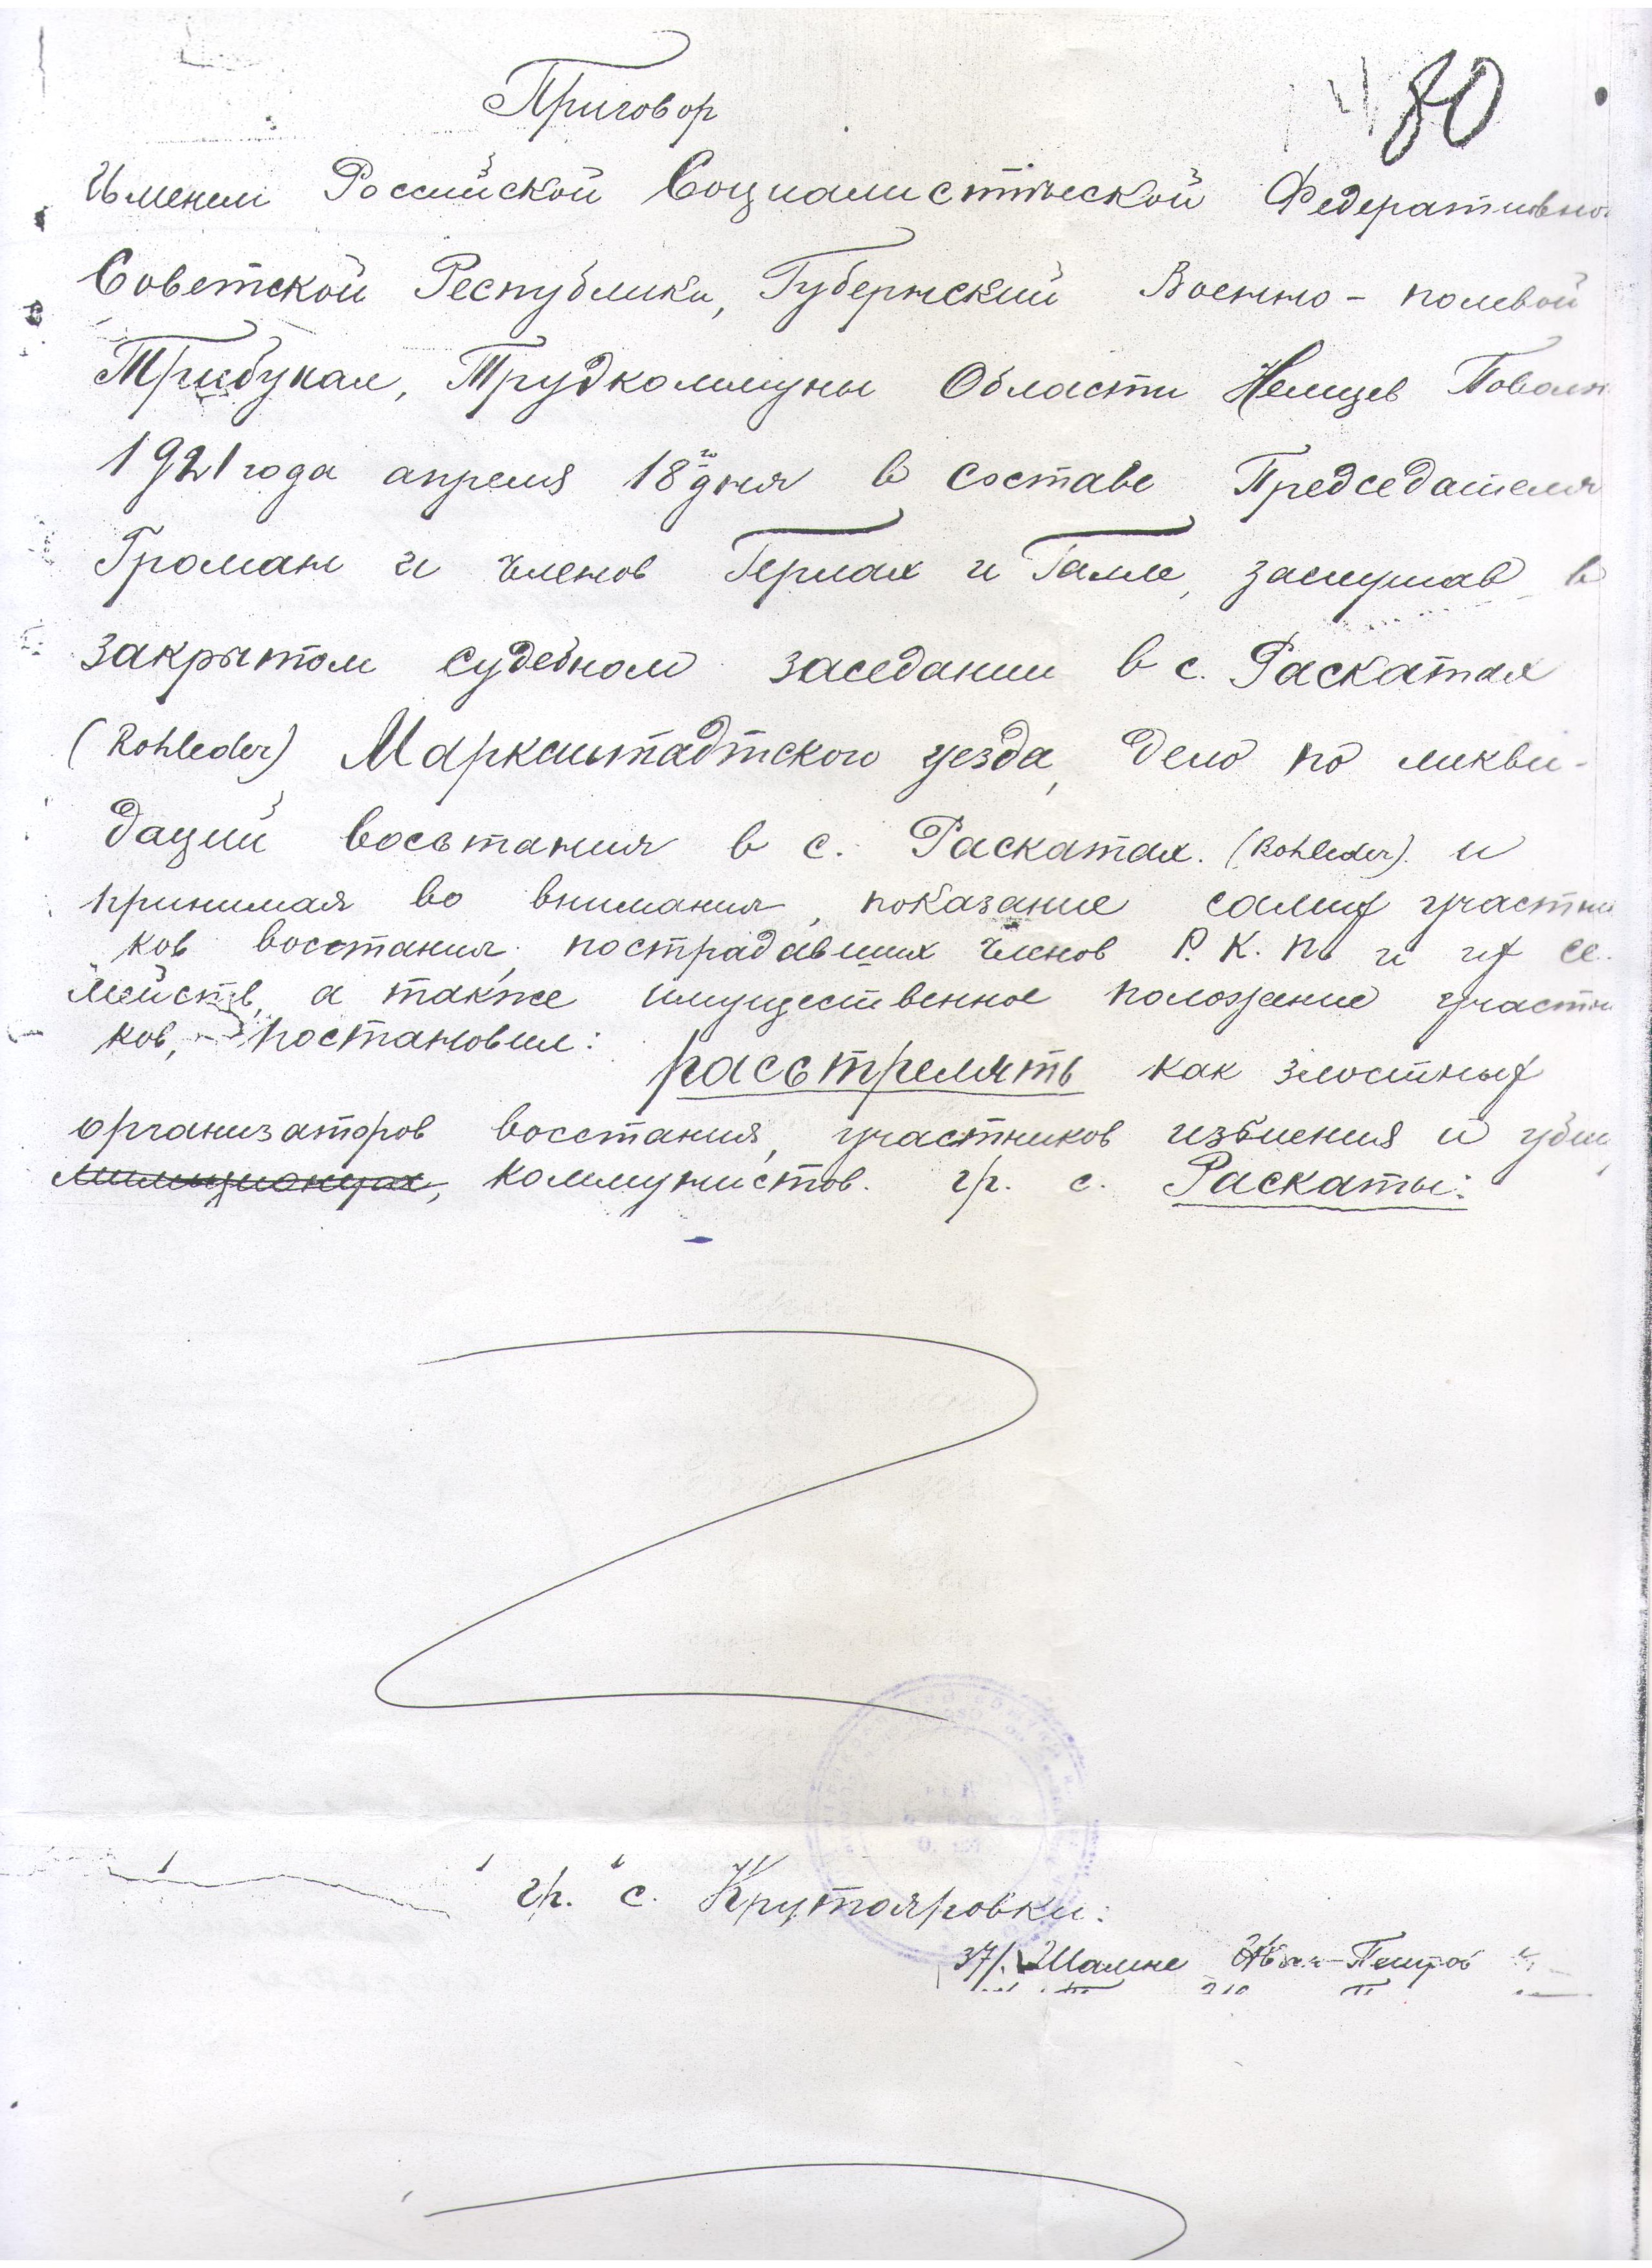 80
Приговор
Именем Российской Социалистической Федеративно
Советской Республики, Губернский Военно-полевой
Трибунал, Трудкоммуны Области Немцев Поволж
1921 года апреля 18го дня в составе Председателя
Громан и членов Герлах и Галле, заслушав в
закрытом судебном заседании в с. Раскатах
(Rohleder) Марксштадтского уезда, дело по ликви-
даций восьтания в с. Раскатах. (Rohleder). и
принимая во внимания, показание самих участни
ков восстания, пострадавших членов Р.К.П. и их се-
мейств, а также имущественное положение участни
ков, постановил:
расстрелять как злостных
организаторов восстания, участников избиения и убий
милиционерах, коммунистов. гр. с. Раскаты:
гр. с. Крутояровки:
37/. Шалне Иван Петров